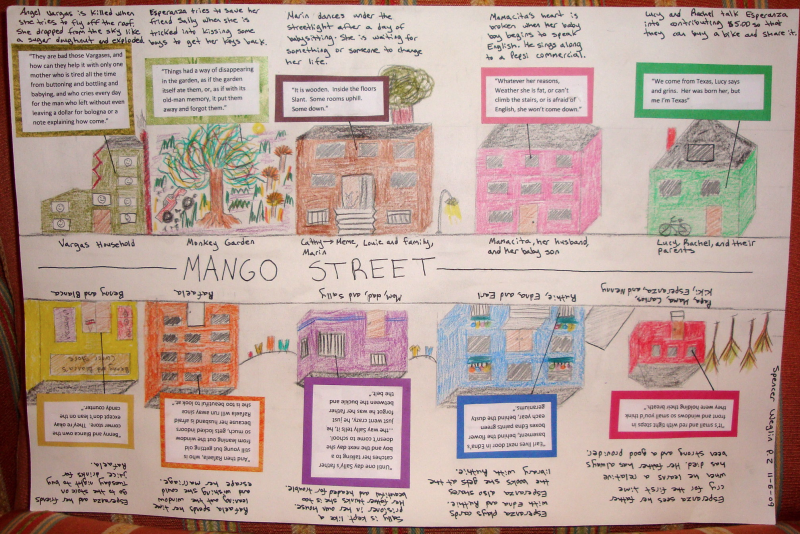 Angel Vargas is killed when
she tries to fly off the roof.
She dropped from the sky like
a sugar doughnut and exploded.
"They are bad those Vargases, and
how can they help it with only one
mother who is tired all the time
from buttoning and bottling and
babying, and who cries every day
for the man who left without even
leaving a dollar for bologna or a
note explaining how come."
Esperanza tries to save her
friend Sally when she is
tricked into kissing some
boys to get her keys back.
"Things had a way of disappearing
in the garden, as if the garden
itself ate them, or, as if with its
old-man memory, it put them
away and forgot them."
Marin dances under the
streetlight after a day of
babysitting. She is waiting for
something or someone to change
her life.
"It is wooden, inside the floors
Slant. Some rooms uphill.
Some down."
Mamacita's heart is
broken when her baby
boy begins to speak
English. He sings along
to a Pepsi commercial.
"Whatever her reasons,
Weather she is fat, or can't
climb the stairs, or is afraid of
English, she won't come down."
Lucy and Rachel talk Esperanza
into contributing $5.00 so that
they can buy a bike and share it.
"We come from Texas, Lucy says
and grins. Her was born her, but
me I'm Texas"
Vargas Household
Monkey Garden
Cathy → Meme, Louie and family,
Marin
Mamacita, her husband,
and her baby son
Lucy, Rachel, and their
parents
MANGO STREET
Papa, Mama, Carlos,
Kiki, Esperanza, and Nenny
Ruthie, Edna, and Earl
Mom, dad, and Sally
Rafaela
Benny and Blanca
"It's small and red with tight steps in
front and windows so small you'd think
they were holding their breath."
Esperanza sees her father
cry for the first time
when he learns a relative
died. Her father has always
been strong and a good provider.
"Earl lives next door in Edna's
basement, behind the flower
boxes Edna paints green
each year, behind the dusty
geraniums."
Esperanza plays cards
with Edna and Ruthie.
Esperanza also shares
the books she gets at the
library with Ruthie.
"Until one day Sally's father
catches her talking to a
boy and the next day she
doesn't come to school.
…the way Sally tells it, he
just went crazy, he just
forgot he was her father
between the buckle and
the belt."
Sally is kept like a
prisoner in her own house.
Her father thinks she is too
beautiful and headed for trouble.
"And then Rafaela, who is
still young but getting old
from leaning out the window
so much, gets locked indoors
because her husband is afraid
Rafaela will run away since
she is too beautiful to look at."
Rafaela spends her time
leaning out the window
and wishing she could
escape her marriage.
"Benny and Blanca own the
corner store. They're okay
except don't lean on the
candy counter."
Esperanza and her friends
go to the store on
Tuesday nights to buy
juice drinks for
Rafaela.
Spencer Weglin P.2 11-6-09